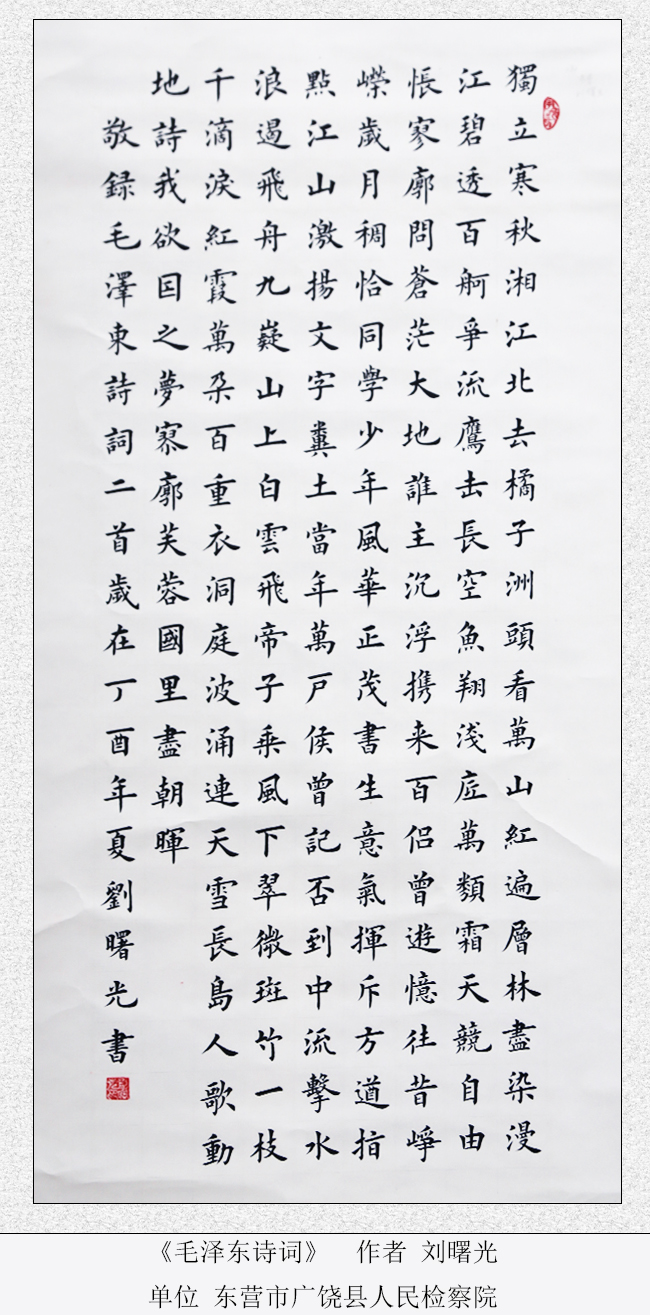 獨立寒秋湘江北去橘子洲頭看萬山紅遍層林盡染漫
江碧透百舸爭流鷹击長空魚翔浅底萬類霜天競自由
悵寥廓問蒼茫大地誰主沉浮携来百侣曾遊憶往昔崢
嶸歲月稠恰同學少年風華正茂書生意氣揮斥方遒指
點江山激揚文字糞土當年萬戸侯曾記否到中流擊水
浪遏飛舟九嶷山上白雲飛帝子乘風下翠微斑竹一枝
千滴淚紅霞萬朵百重衣洞庭波涌連天雪長島人歌動
地詩我欲因之夢寥廓芙蓉國里盡朝暉
敬録毛澤東詩詞二首歲在丁酉年夏劉曙光書
《毛泽东诗词》 作者 刘曙光
单位 东营市广饶县人民检察院